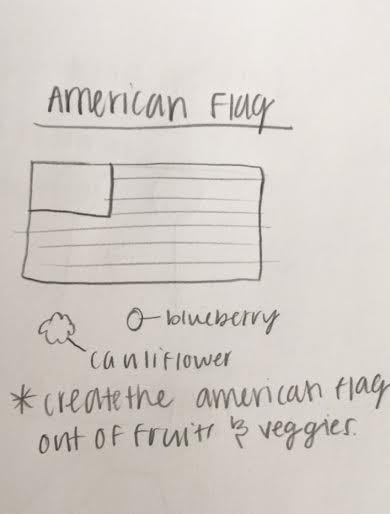 American Flag
blueberry
cauliflower
*create the american flag
out of fruits & veggies.